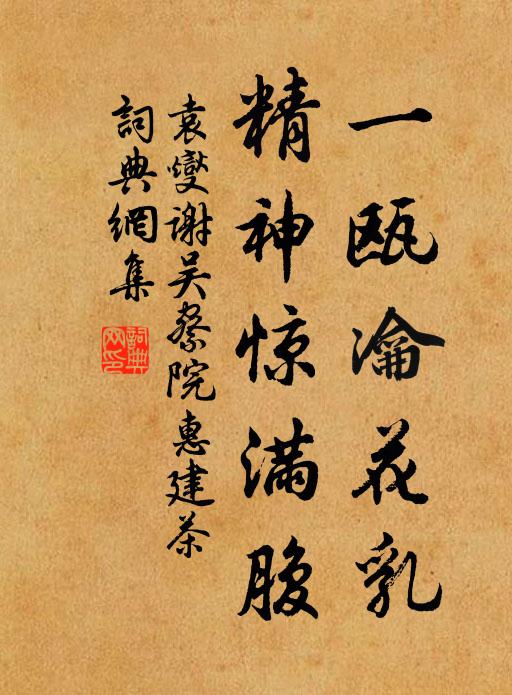 一瓯瀹花乳
精神惊满腹
袁燮谢吴察院惠建茶
詞典網集
詞典網印